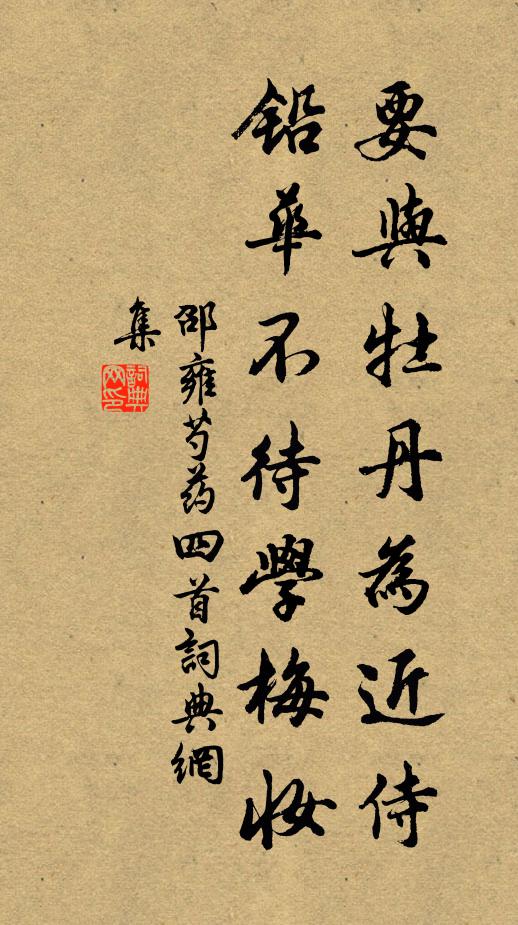 要與牡丹為近侍
鉛華不待學梅妝
邵雍芍药四首詞典網
集
詞典網印